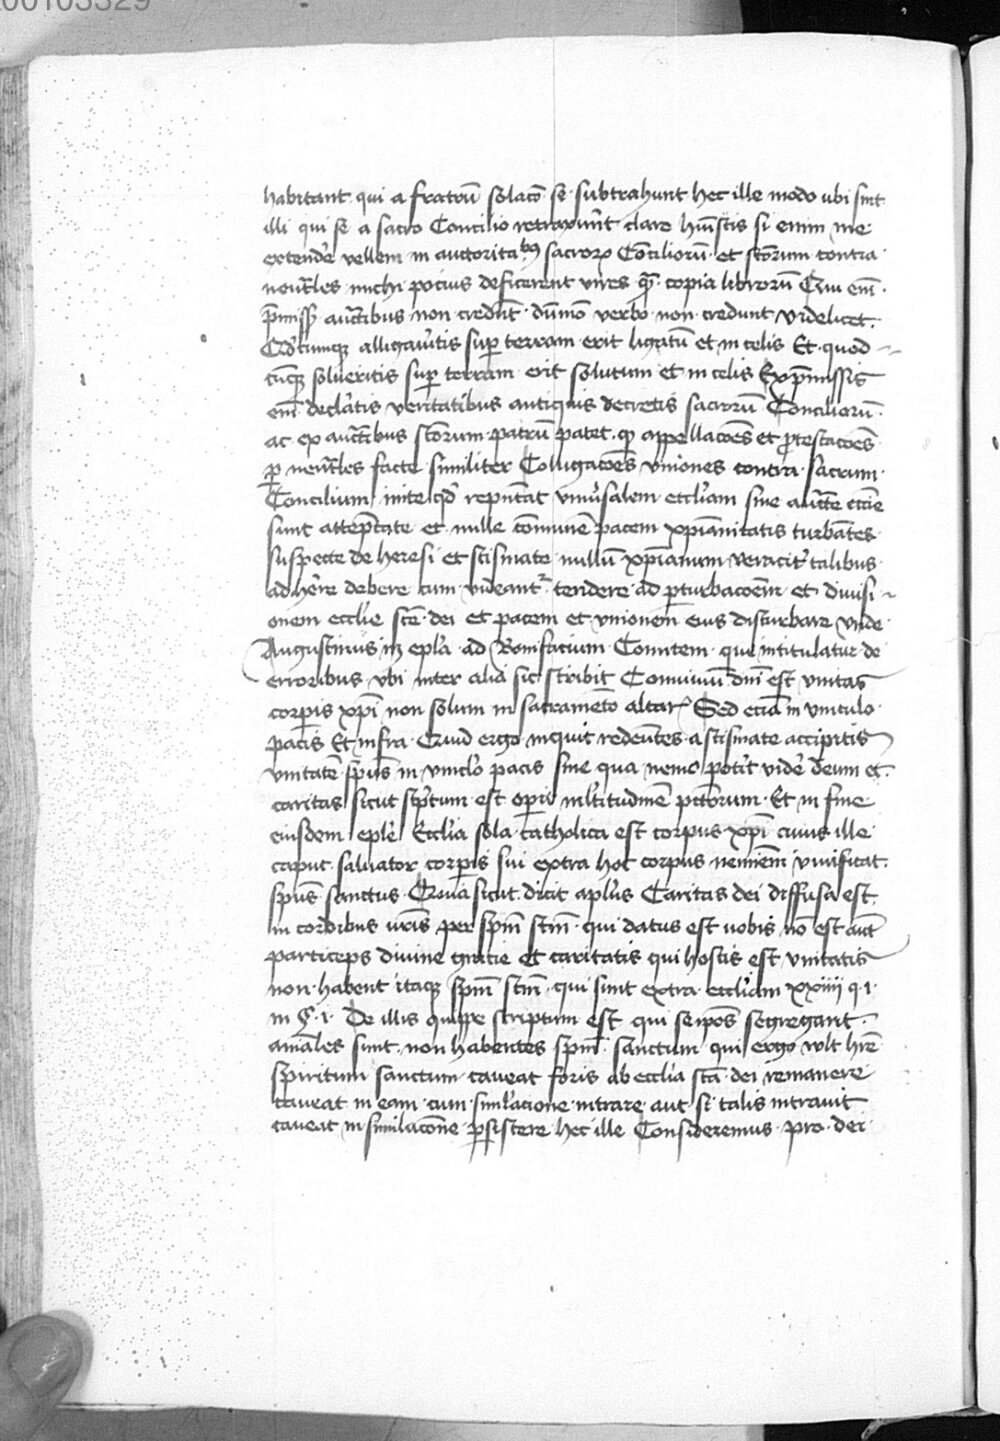 00103329
habitant qui a fratrū solacō se subtrahunt hec ille modo ubi sint
illi qui se a sacro Concilio retraxūnt clare
si enim me
extendē vellem in auctoritabꝰ sacroꝝ Conciliorū et sctorum contra
neutͣles michi pocius deficerent vires qͣ copia librorū Qui em̄
p̄missꝭ auctͣibus non credūt dumō verbo non credunt videlicet
Qd̄cumqꝫ alligauītis suꝑ terram erit ligatū et in celis Et quod
cūqꝫ solueritis suꝑ terram erit solutum et in celis Ex p̄missis
em̄ declatis veritatibus antiquis decretis sacrorū Conciliorū
ac ex auctͣibus sctorum patrū patet qꝫ appellacoēs et ꝓtestacoēs
ꝑ neutͣles facte similiter Colligacoēs vniones contra sacrum
Concilium inite qd̄ repn̄tat vniūsalem eccliam sine auctͣte eccie
sunt attēptate et nulle cōmunē pacem xp̄ianitatis turbātes
suspecte de heresi et scismate nullū xp̄ianum veracit̄ talibus
adherē debere cum videant̄ tendere ad ꝑturbacoēm et diuisi
onem ecclie scē dei et pacem et vnionem eius disturbare vnde
Augustinus in epla ad Bonifacium Comitem qui intitulatur de
erroribus vbi inter alia sic scribit Conuiuiū dn̄i est vnitas
corꝑis xp̄i non solum in sacramēto altarꝭ Sed eciā in vinculo
pacis Et infra Quid ergo inquit redeūtes a scismate accipitis
vnitatē sp̄us in vinclo pacis sine qua nemo potit vidē deum et
caritas sicut scptum est oꝑit mltitudinē pctorum Et in fine
eiusdem eple Ecclia sola catholica est corpus xp̄i cuius ille
caput saluator corꝑis sui extra hoc corpus neminem viuificat
sp̄us sanctus Quia sicut dicit aplus Caritas dei diffusa est
in cordibus vr̄is per sp̄m scm̄ qui datus est uobis nō est aut̄
particeps diuine gracie et caritatis qui hostis est vnitatis
non habent itaqꝫ sp̄m scm̄ qui sunt extra eccliam xxiiii q i
in § i De illis quippe scriptum est qui seip̄os segregant
aīales sunt non habentes sp̄m sanctum qui ergo vlt hr̄e
spiritum sanctum caueat foris ab ecclia scā dei remanere
caueat in eam cum simlacione intrare aut si talis intrauit
caueat in similacōne ꝑsistere hec ille Consideremus pro dei